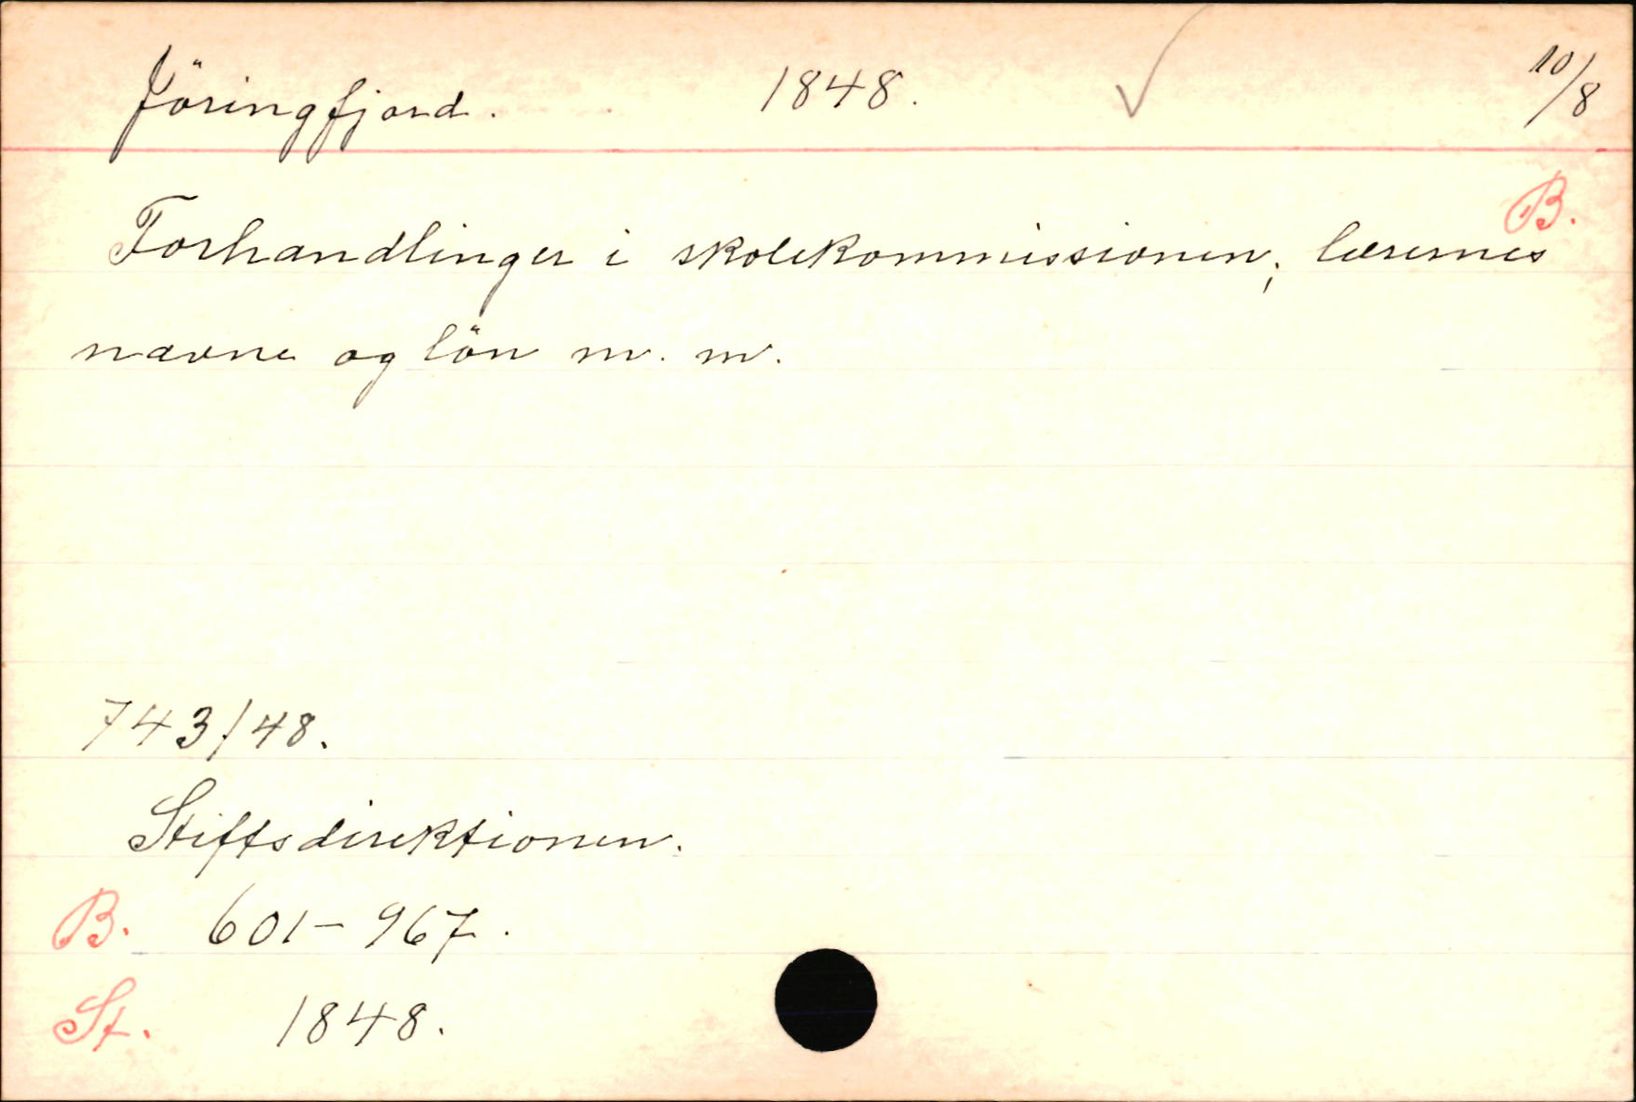 Jöringfjord. 1848. 10/8
B.
Forhandlinger i skolekommissionen; lærernes
navne og lön m. m.
743/48.
Stiftsdirektionen.
B. 601-967.
St. 1848.